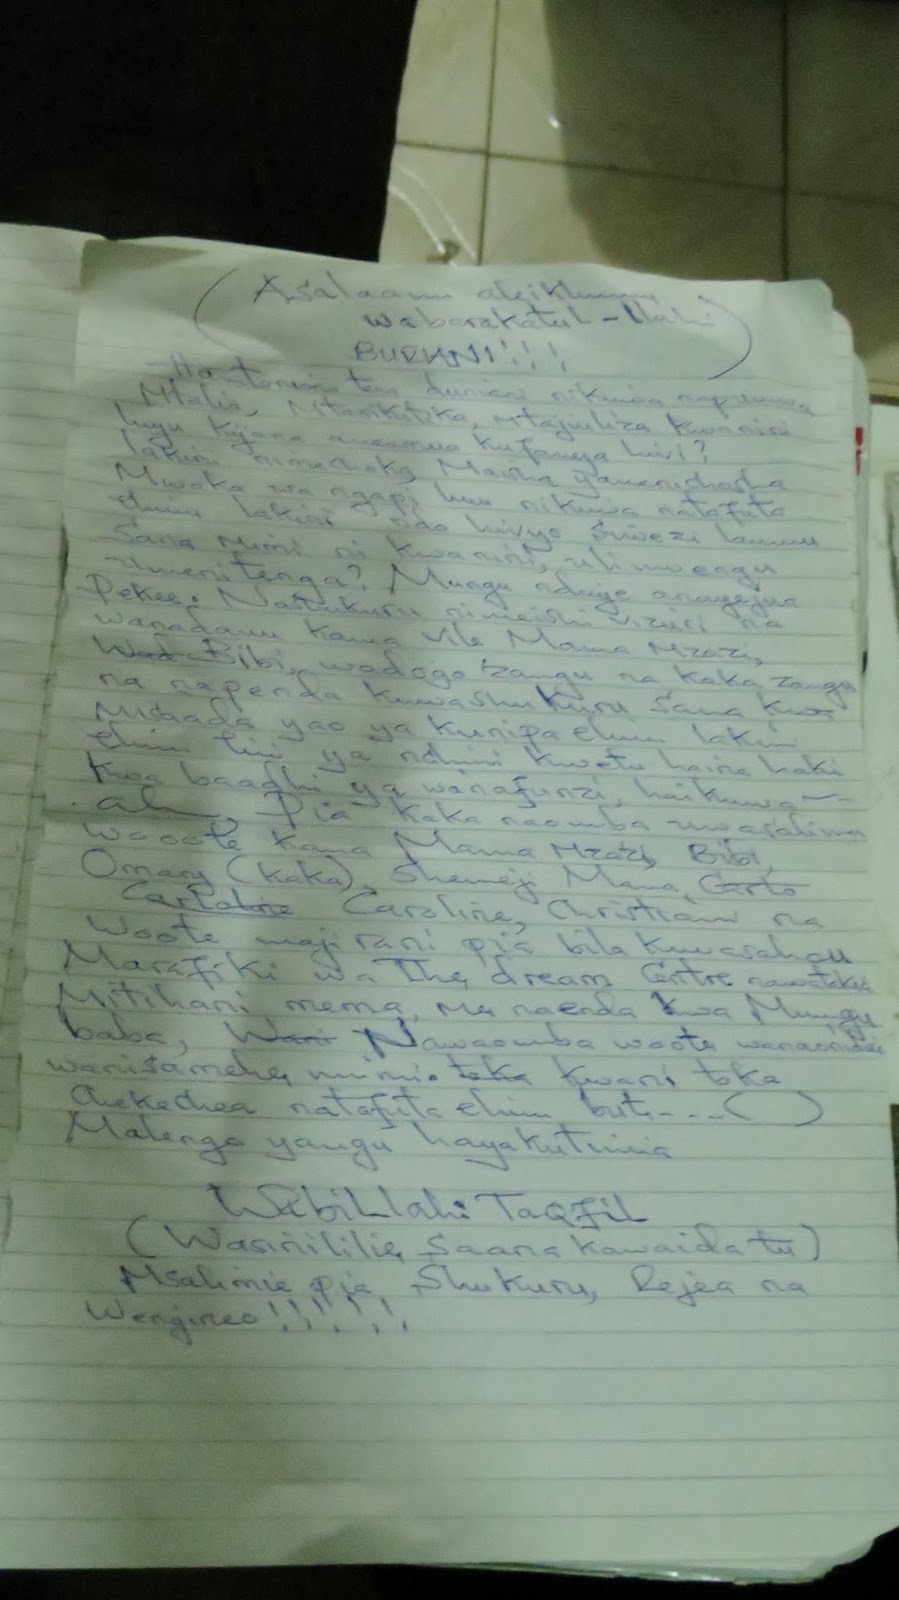 (Asalaam aleikhum
wabarakatul-llahi)
BURIANI!!!
Hamtoniona tena duniani nikiwa napumua
Mtalia, Mtasikitika, Mtajiuliza kwanini
huyu kijana ameamua kufanya hivi?
lakini nimechoka, Maisha yamenichosha
Mwaka wa ngapi huu nikiwa natafuta
elimu lakini ndo hivyo siwezi laumu
Sana mimi ni kwanini, ulimwengu
umenitenga? Mungu ndiye anayejua
Pekee. Nashukuru nimeishi vizuri na
wanadamu kama vile Mama Mzazi,
Bibi, wadogo zangu na kaka zangu
na napenda kuwashukuru sana kwa
Misaada yao ya kunipa elimu lakini
elimu hii ya nchini kwetu haina haki
kwa baadhi ya wanafunzi, haikuwa --
. ah , Pia kaka naomba uwasalimu
Wooote kama Mama Mzazi, Bibi,
Omary (kaka), Shemeji Mama, Carto
Carloline Caroline, Christian na
Woote majirani pia bila kuwasahau
Marafiki wa The dream Centre nawatakia
Mitihani mema, Me naenda kwa Mungu
baba, Nawaomba woote
wanisamehe mimi toka kwani toka
Chekechea natafuta elimu but----( )
Malengo yangu hayakutimia
WabilLlahi TaqFil
(Wasinililie Saana kawaida tu)
Msalimie pia Shukuru, Rejea na
Wengineo!!!!!!